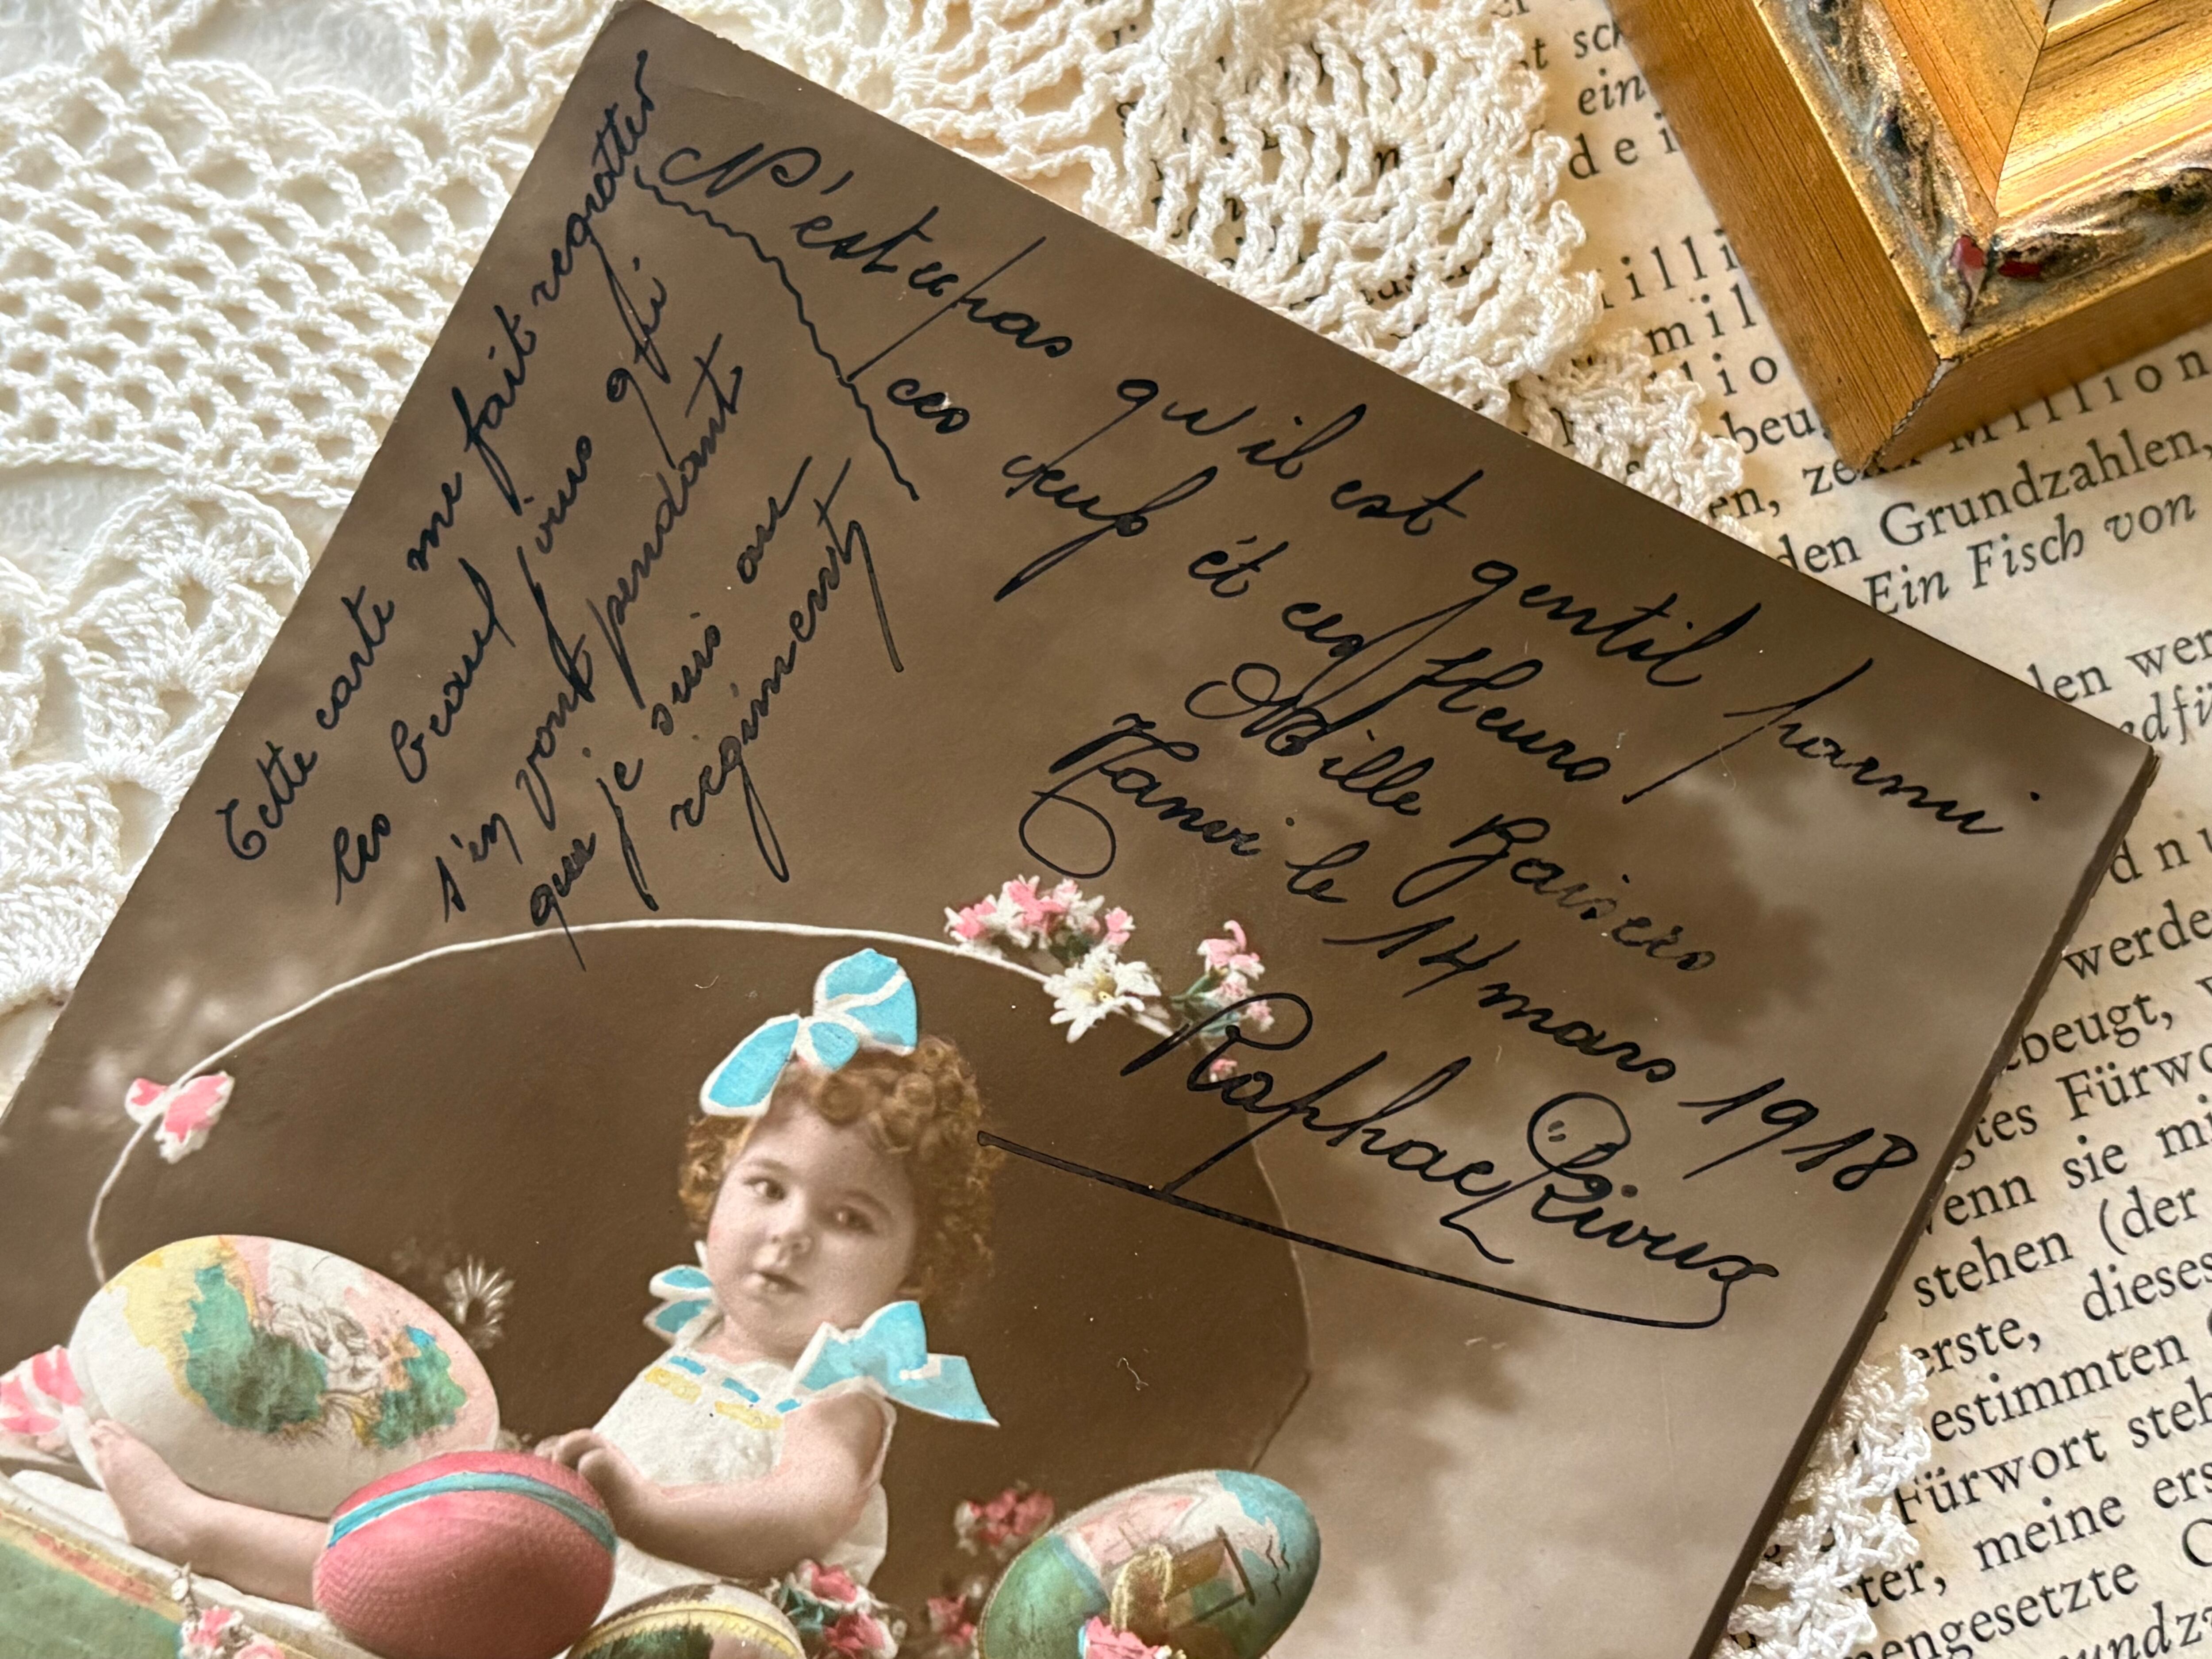 Cette carte me fait regretter
les beaux jours qui
s'en vont pendant
que je suis au
regiment
N'est ce pas qu'il est gentil parmi
ces oeufs et ces fleurs
Mille Baisers
le 14 mars 1918
Raphael
t sch
ein
dei
illi
mil
lio
beu
Million
en,
den Grundzahlen,
Ein Fisch von
len wer
werde
ebeugt,
tes Fürwo
wenn sie mi
stehen (der
erste, dieses
estimmten
Fürwort steh
ter, meine ers
engesetzte
undz